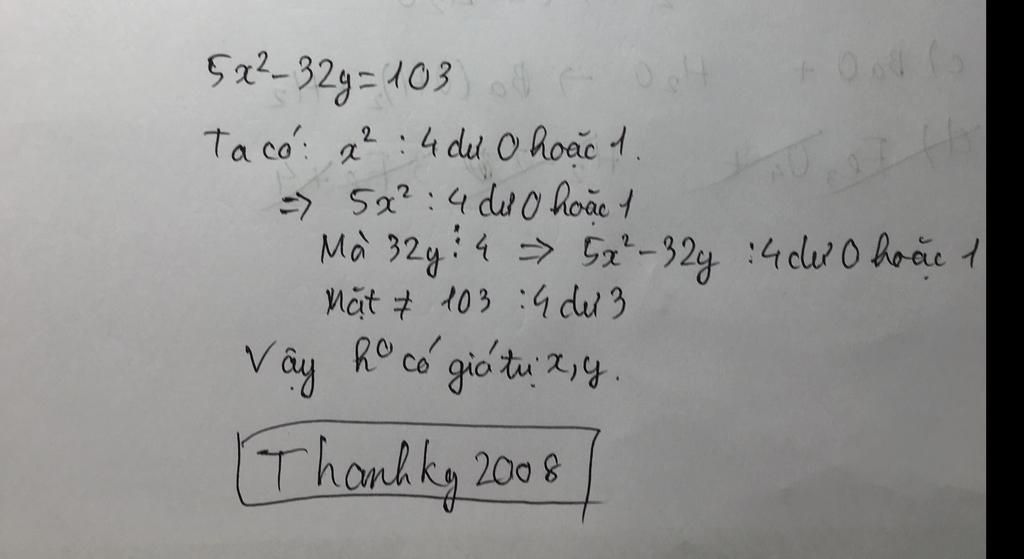 5x² - 32y = 103
Ta có: x² : 4 dư 0 hoặc 1.
=> 5x² : 4 dư 0 hoặc 1
Mà 32y ⋮ 4 => 5x² - 32y : 4 dư 0 hoặc 1
Mặt ≠ 103 : 4 dư 3
Vậy k⁰ có giá trị x, y.
Thanhkg 2008